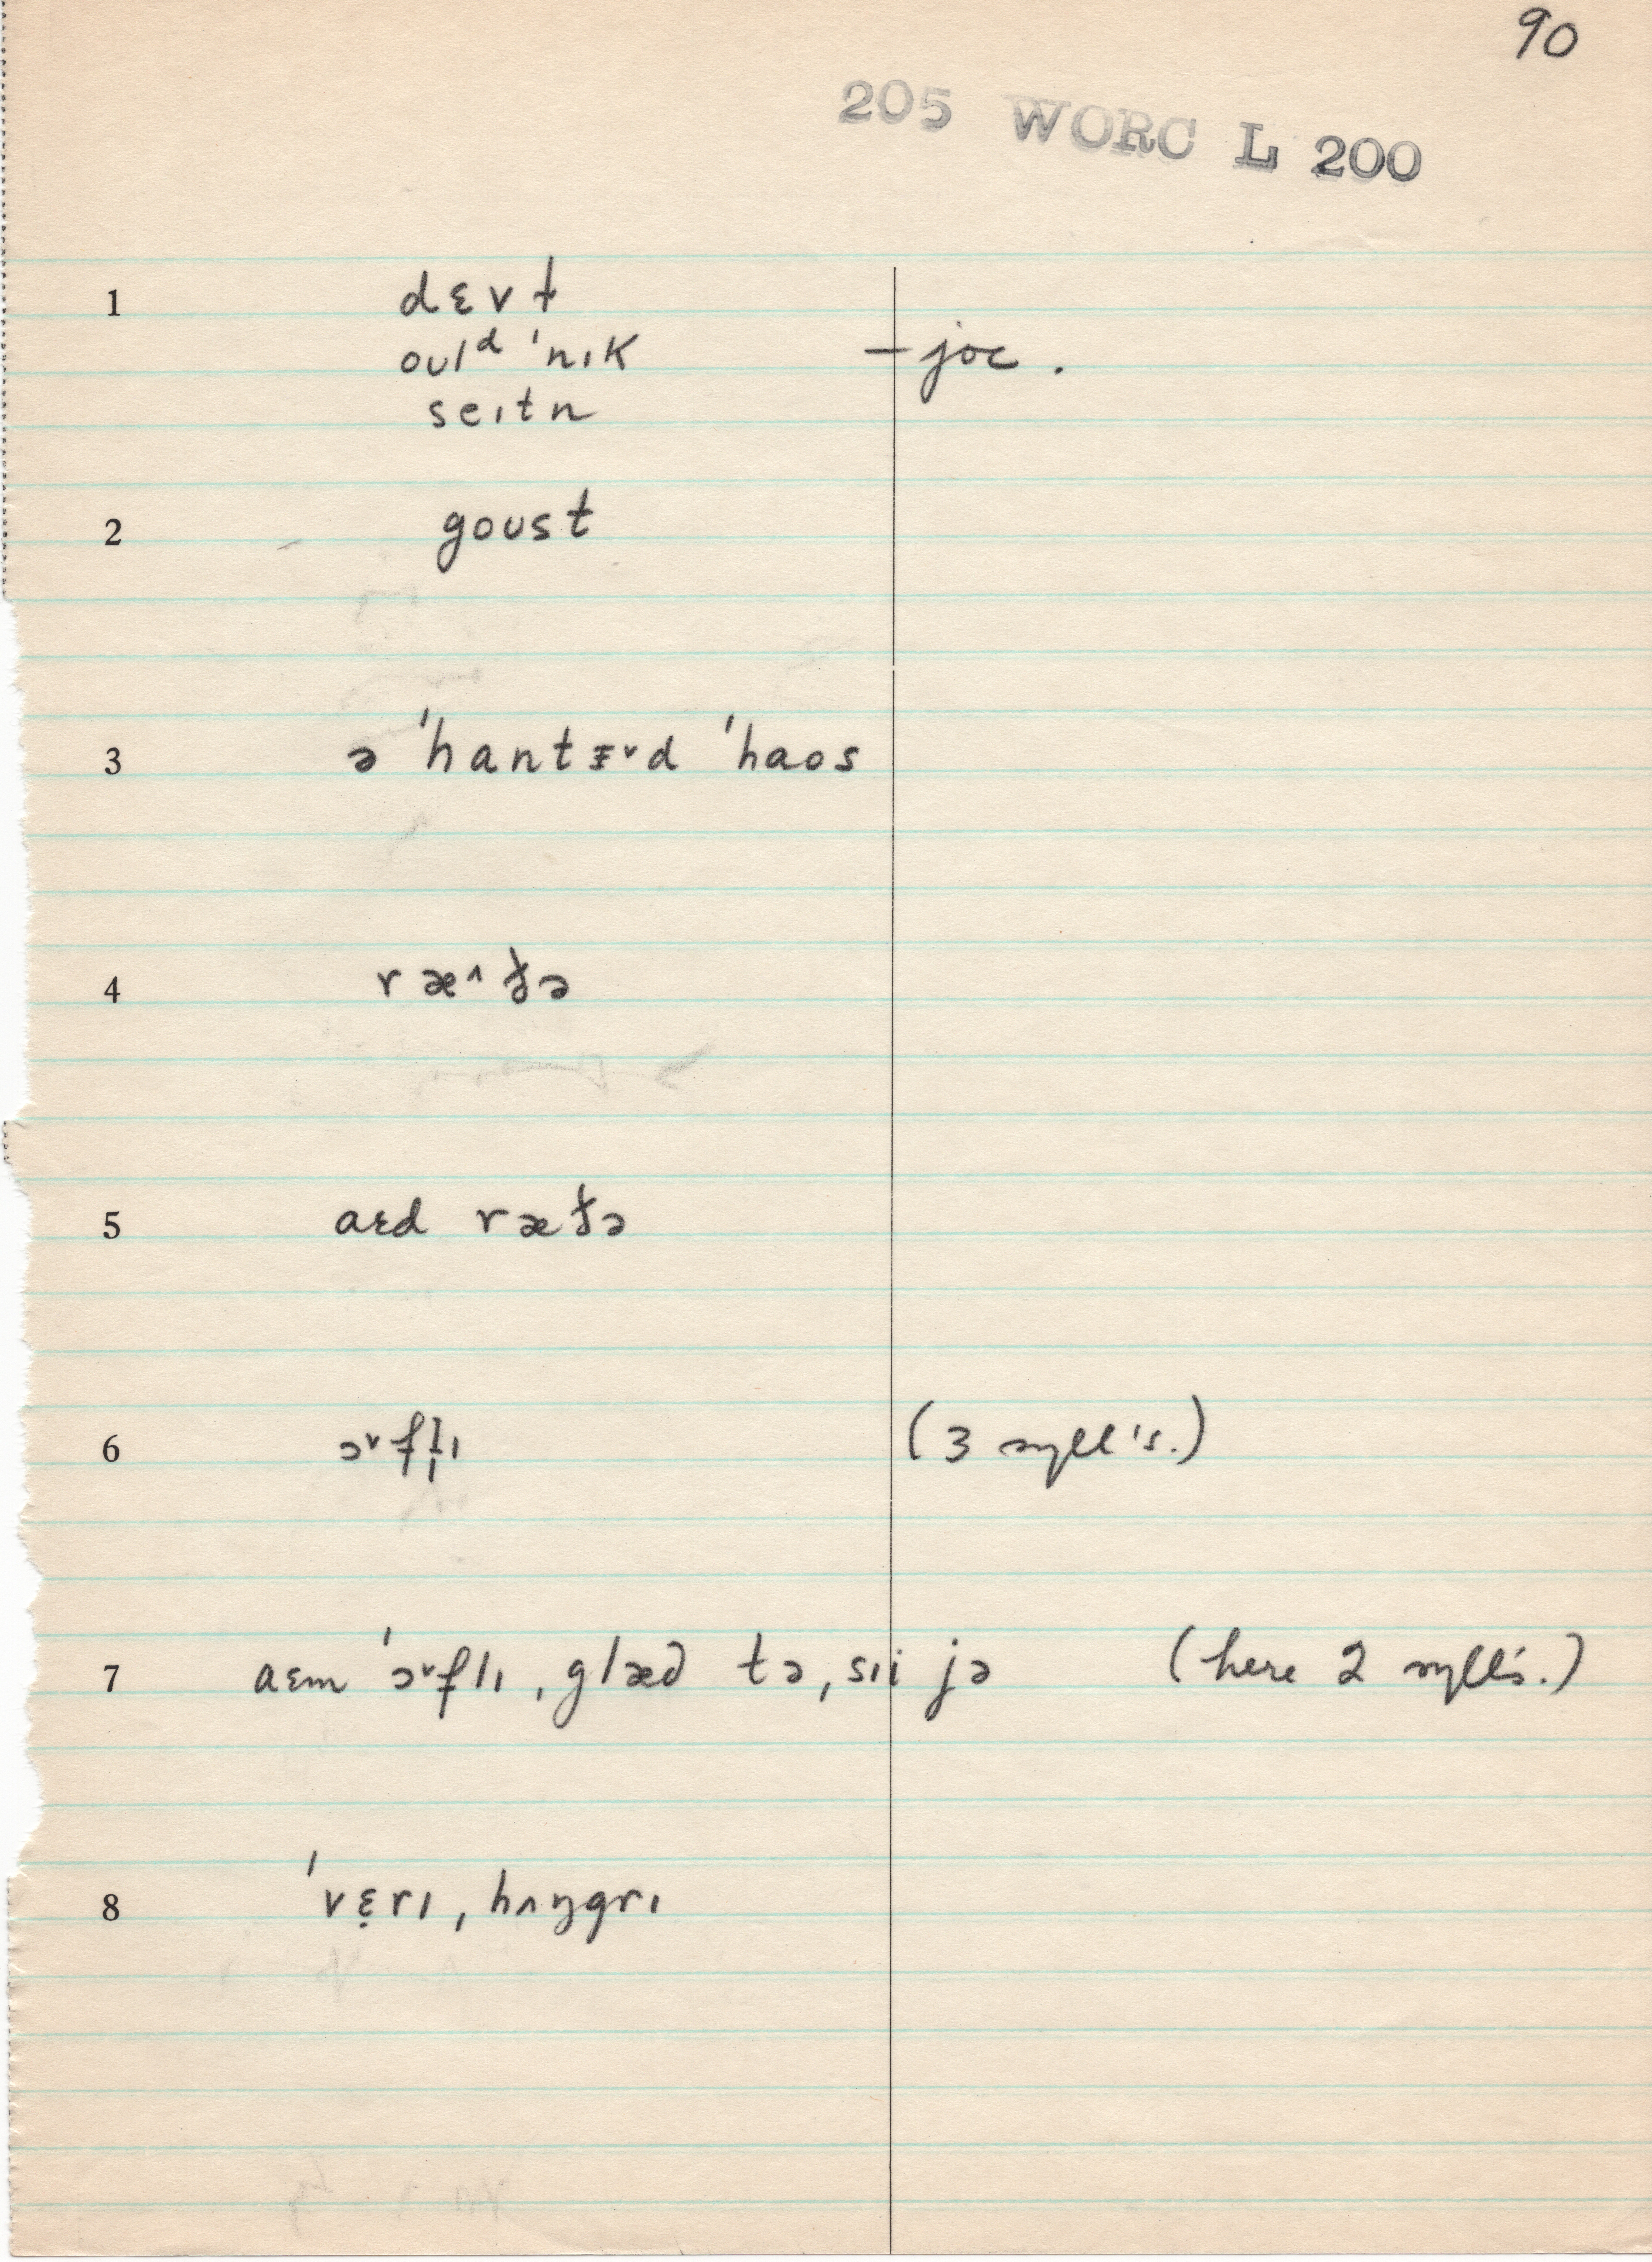 90
205 WORC L 200
1 dɛvɫ
oʊlᵈ ˈnɪk — joc.
seɪtn
2 goʊst
3 ə ˈhantɪ̵˅d ˈhaos
4 ræ˄ðə
5 aɛd ræðə
6 ɔ˅fl̩ɪ (3 syll's.)
7 aɛm ˈɔ˅flɪ ˌglæd təˌsɪi jə (here 2 syll's.)
8 ˈvɛ̣rɪ ˌhʌŋgrɪ